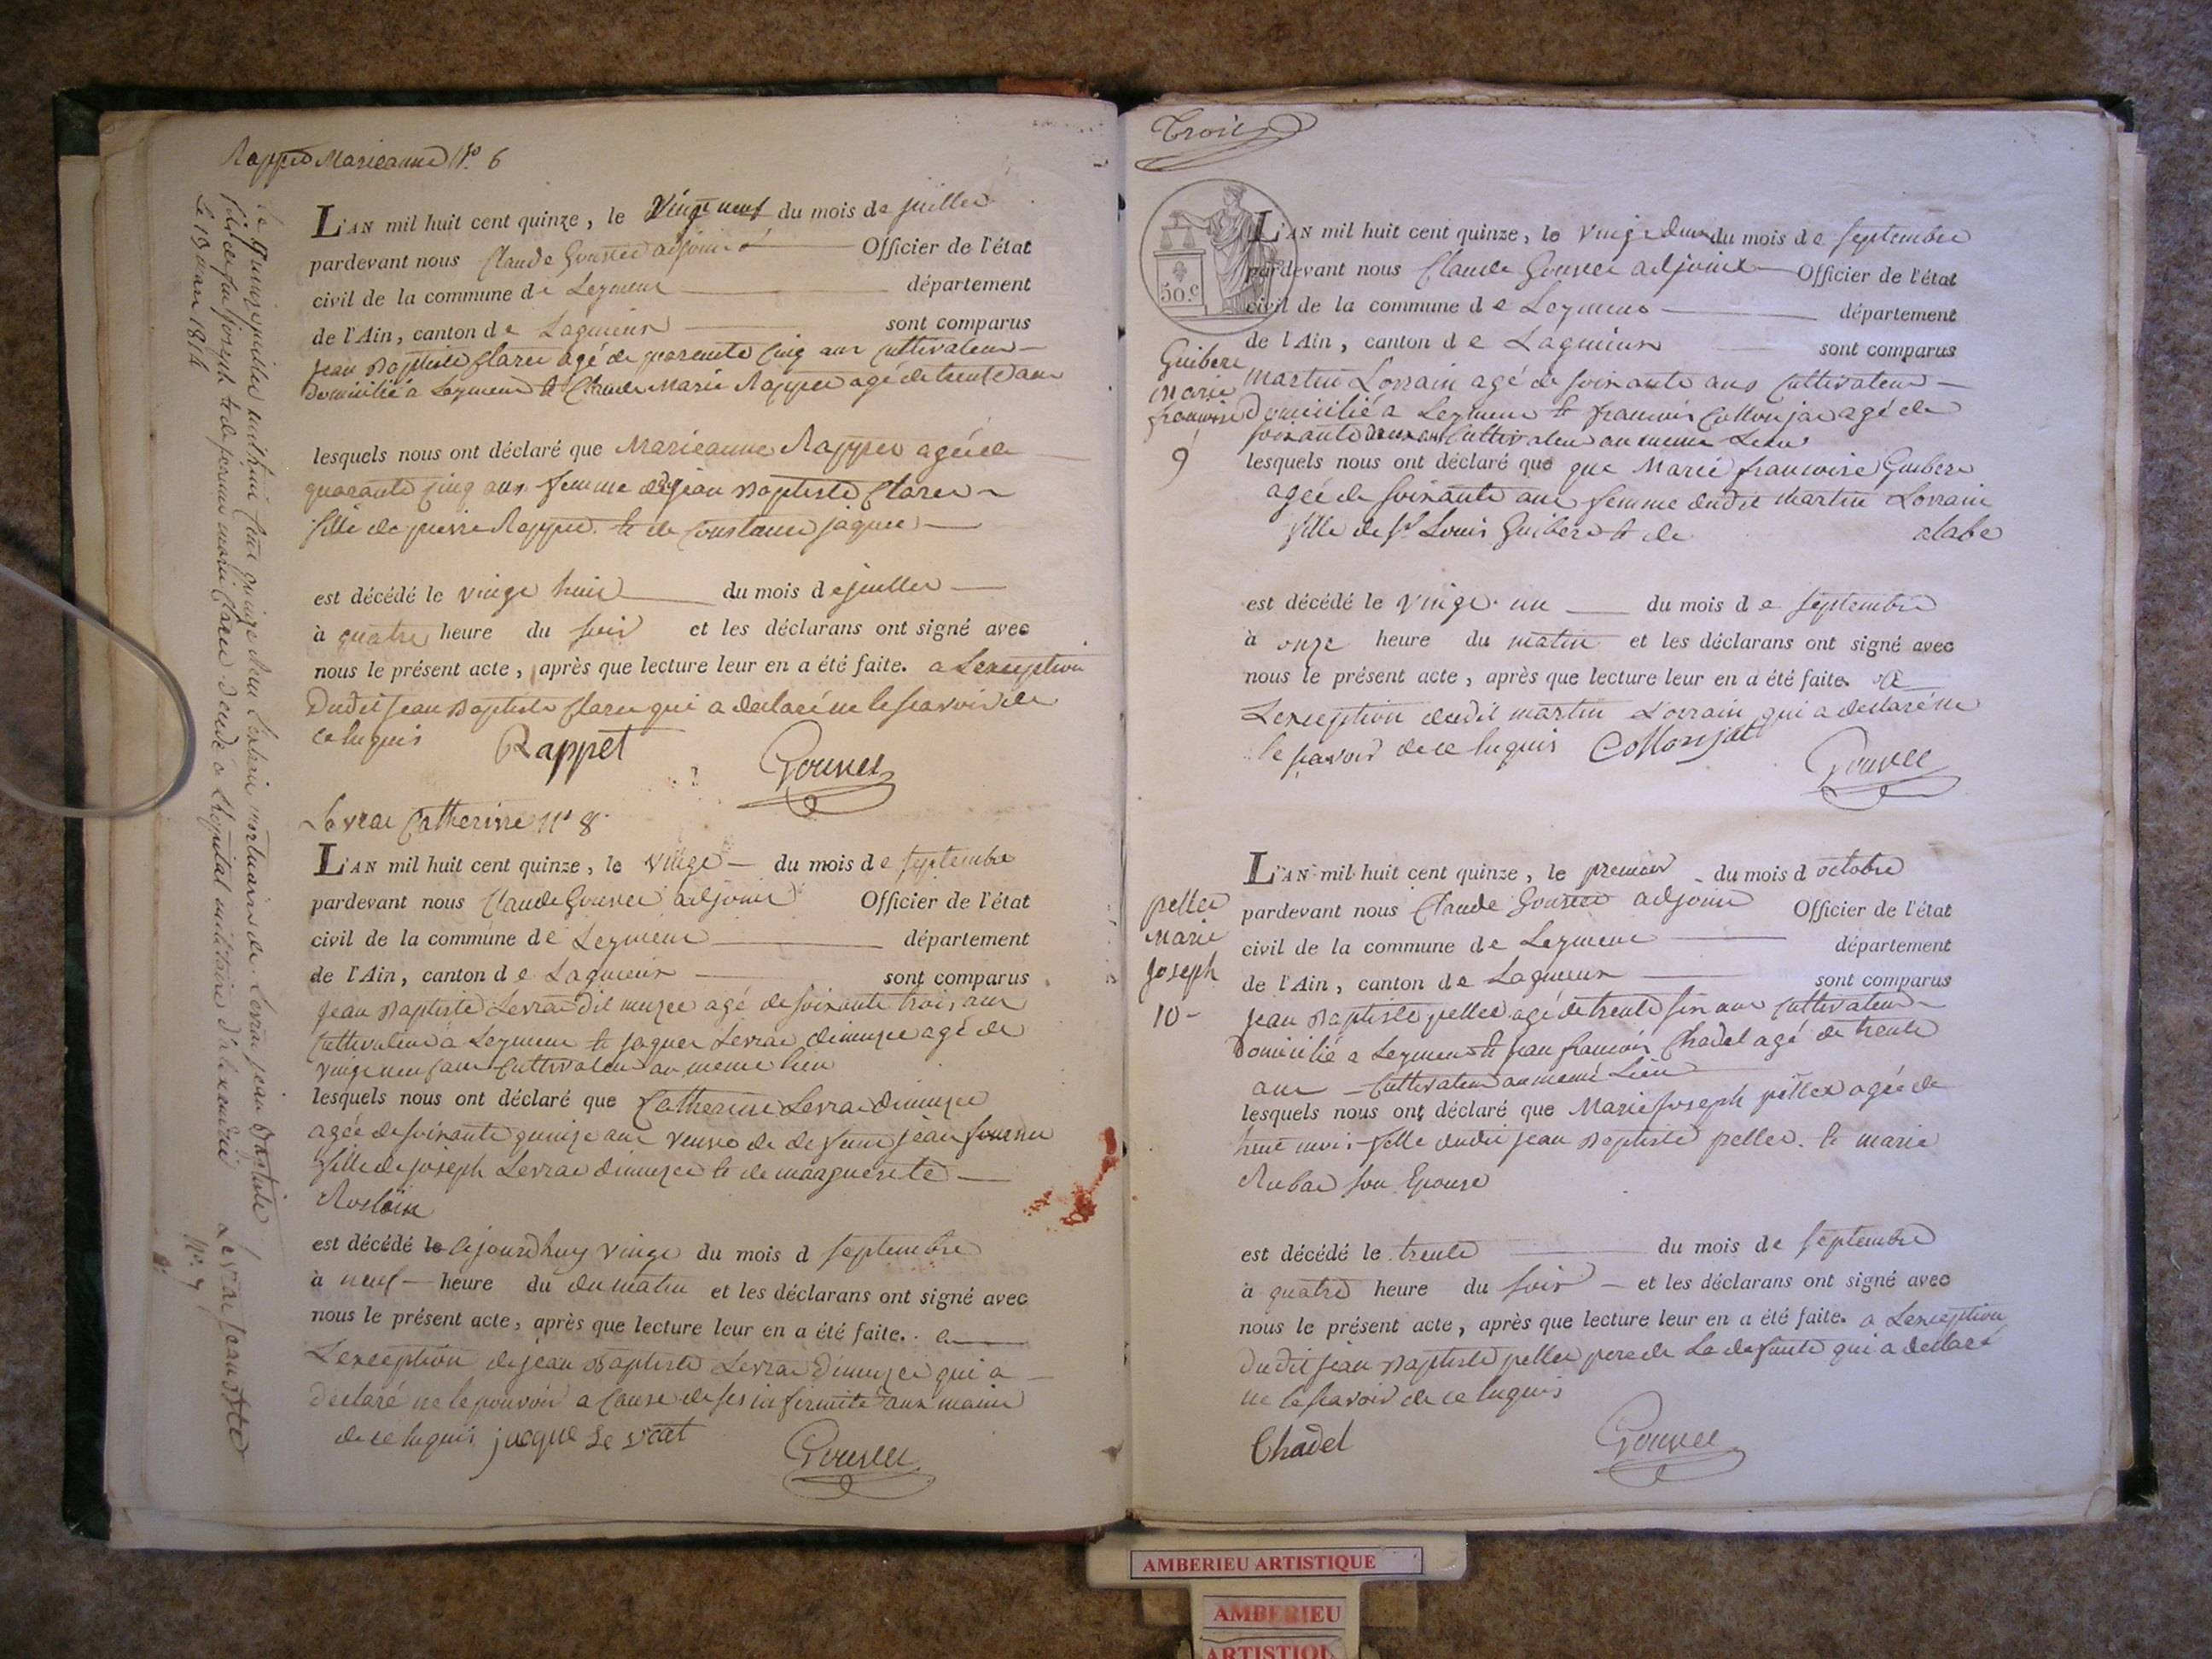 Rappet Marieanne N.o 6
L'AN mil huit cent quinze, le Vingt neuf du mois de juillet
pardevant nous Claude Gouvet adjoint Officier de l'état
civil de la commune de Leyment département
de l'Ain, canton de Lagnieux sont comparus
jean Baptiste Claret agé de quarante cinq ans cultivateur
domicilié a Leyment et Claude Marie Rappet agé de trente ans
lesquels nous ont déclaré que Marieanne Rappet agée de
quarante cinq ans femme de jean Baptiste Claret
fille de pierre Rappet et de Constance jaquet
est décédé le vingt huit du mois de juillet
à quatre heure du soir et les déclarans ont signé avec
nous le présent acte, après que lecture leur en a été faite. a Lexception
dudit jean Baptiste Claret qui a declaré ne le scavoir de
ce Requis Rappet Gouvet
Levrat Catherine N.o 8
L'AN mil huit cent quinze, le vingt du mois de septembre
pardevant nous Claude Gouvet adjoint Officier de l'état
civil de la commune de Leyment département
de l'Ain, canton de Lagnieux sont comparus
jean Baptiste Levrat dit muzet agé de soixante trois ans
cultivateur a Leyment et jaques Levrat agé de
vingt neuf ans Cultivateur au meme lieu
lesquels nous ont déclaré que Catherine Levrat
agée de soixante quinze ans veuve de defunt jean
fille de joseph Levrat et de marguerite
est décédé cejourdhuy vingt du mois d septembre
à neuf heure du du matin et les déclarans ont signé avec
nous le présent acte, après que lecture leur en a été faite. a
Lexception de jean Baptiste Levrat qui a
declaré ne le pouvoir a Cause de ses infirmité aux mains
de ce Requis jacque Le vrat Gouvet
Le juillet mil huit Cent quinze mortuaire de Levrat jean Baptiste
fils de feu joseph et de marie Claret decedé a Lhopital militaire d'alexandrie
Le 13 mars 1814
Levrat jean Bte
N.o 7
Trois
50.c
L'AN mil huit cent quinze, le vingt deux du mois de septembre
pardevant nous Claude Gouvet adjoint Officier de l'état
civil de la commune de Leyment département
de l'Ain, canton de Lagnieux sont comparus
Guibert
Marie
francoise
9
Martin Lorrain agé de soixante ans Cultivateur
domicilié a Leyment et francois Collonjat agé de
soixante deux ans Cultivateur au meme Lieu
lesquels nous ont déclaré que que Marie francoise Guibert
agée de soixante ans femme dudit Martin Lorrain
fille de Louis Guibert et de
est décédé le vingt un du mois de septembre
à onze heure du matin et les déclarans ont signé avec
nous le présent acte, après que lecture leur en a été faite. a
Lexception dudit martin Lorrain qui a declaré ne
le scavoir de ce Requis Collonjat Gouvet
L'AN mil huit cent quinze, le premier du mois d octobre
pellet
Marie
Joseph
10
pardevant nous Claude Gouvet adjoint Officier de l'état
civil de la commune de Leyment département
de l'Ain, canton de Lagnieux sont comparus
jean Baptiste pellet agé de trente six ans Cultivateur
Domicilié a Leyment et jean francois Chadel agé de trente
ans Cultivateur au meme Lieu
lesquels nous ont déclaré que Marie Joseph pellet agée de
huit mois fille dudit jean Baptiste pellet et marie
son Epouse
est décédé le trente du mois de septembre
à quatre heure du soir et les déclarans ont signé avec
nous le présent acte, après que lecture leur en a été faite. a Lexception
dudit jean Baptiste pellet pere de La defunte qui a declaré
ne le scavoir de ce Requis
Chadel Gouvet
AMBERIEU ARTISTIQUE
AMBERIEU
ARTISTIQU